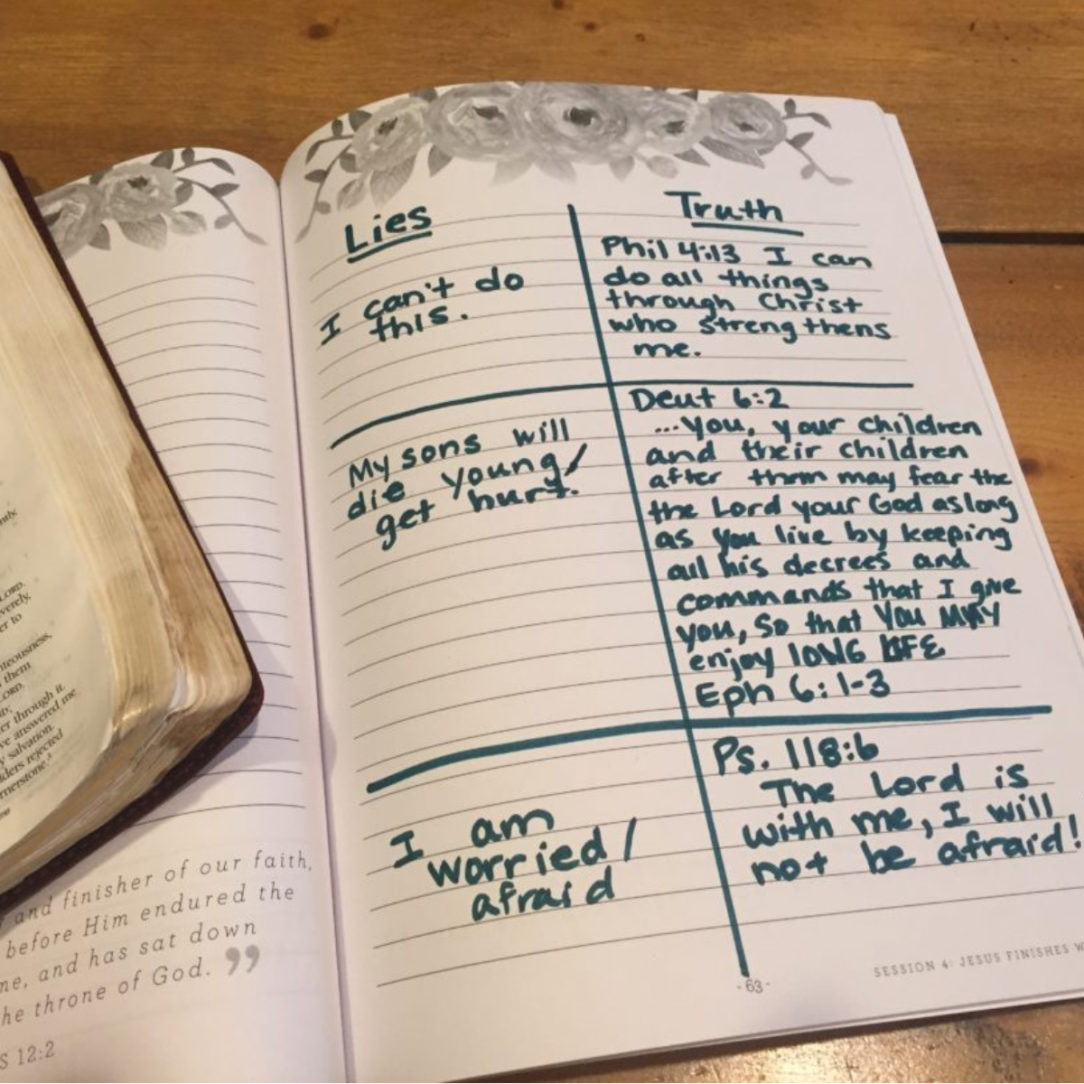 Lies
Truth
I can't do
this.
Phil 4:13 I can
do all things
through Christ
who strengthens
me.
My sons will
die young/
get hurt.
Deut 6:2
...you, your children
and their children
after them may fear the
the Lord your God as long
as you live by keeping
all his decrees and
commands that I give
you, so that YOU MAY
enjoy LONG LIFE
Eph 6:1-3
I am
worried/
afraid
Ps. 118:6
The Lord is
with me, I will
not be afraid!
-63-
SESSION 4: JESUS FINISHES
and finisher of our faith,
before Him endured the
and has sat down
throne of God. ”
12:2
LORD.
verely,
er to
them
LORD,
through it.
answered me
salvation.
rejected